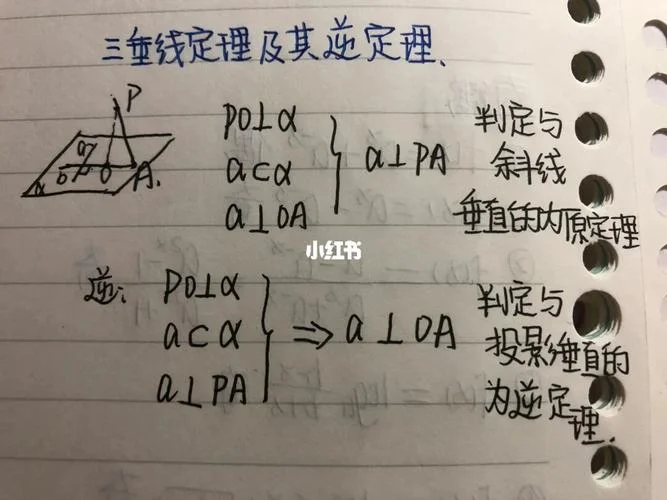 三垂线定理及其逆定理.
P
a
O
A.
α
PO⊥α
a⊂α
a⊥OA
a⊥PA
判定与
斜线
垂直的为原定理
小红书
逆:
PO⊥α
a⊂α
a⊥PA
⇒ a⊥OA
判定与
投影垂直的
为逆定理.